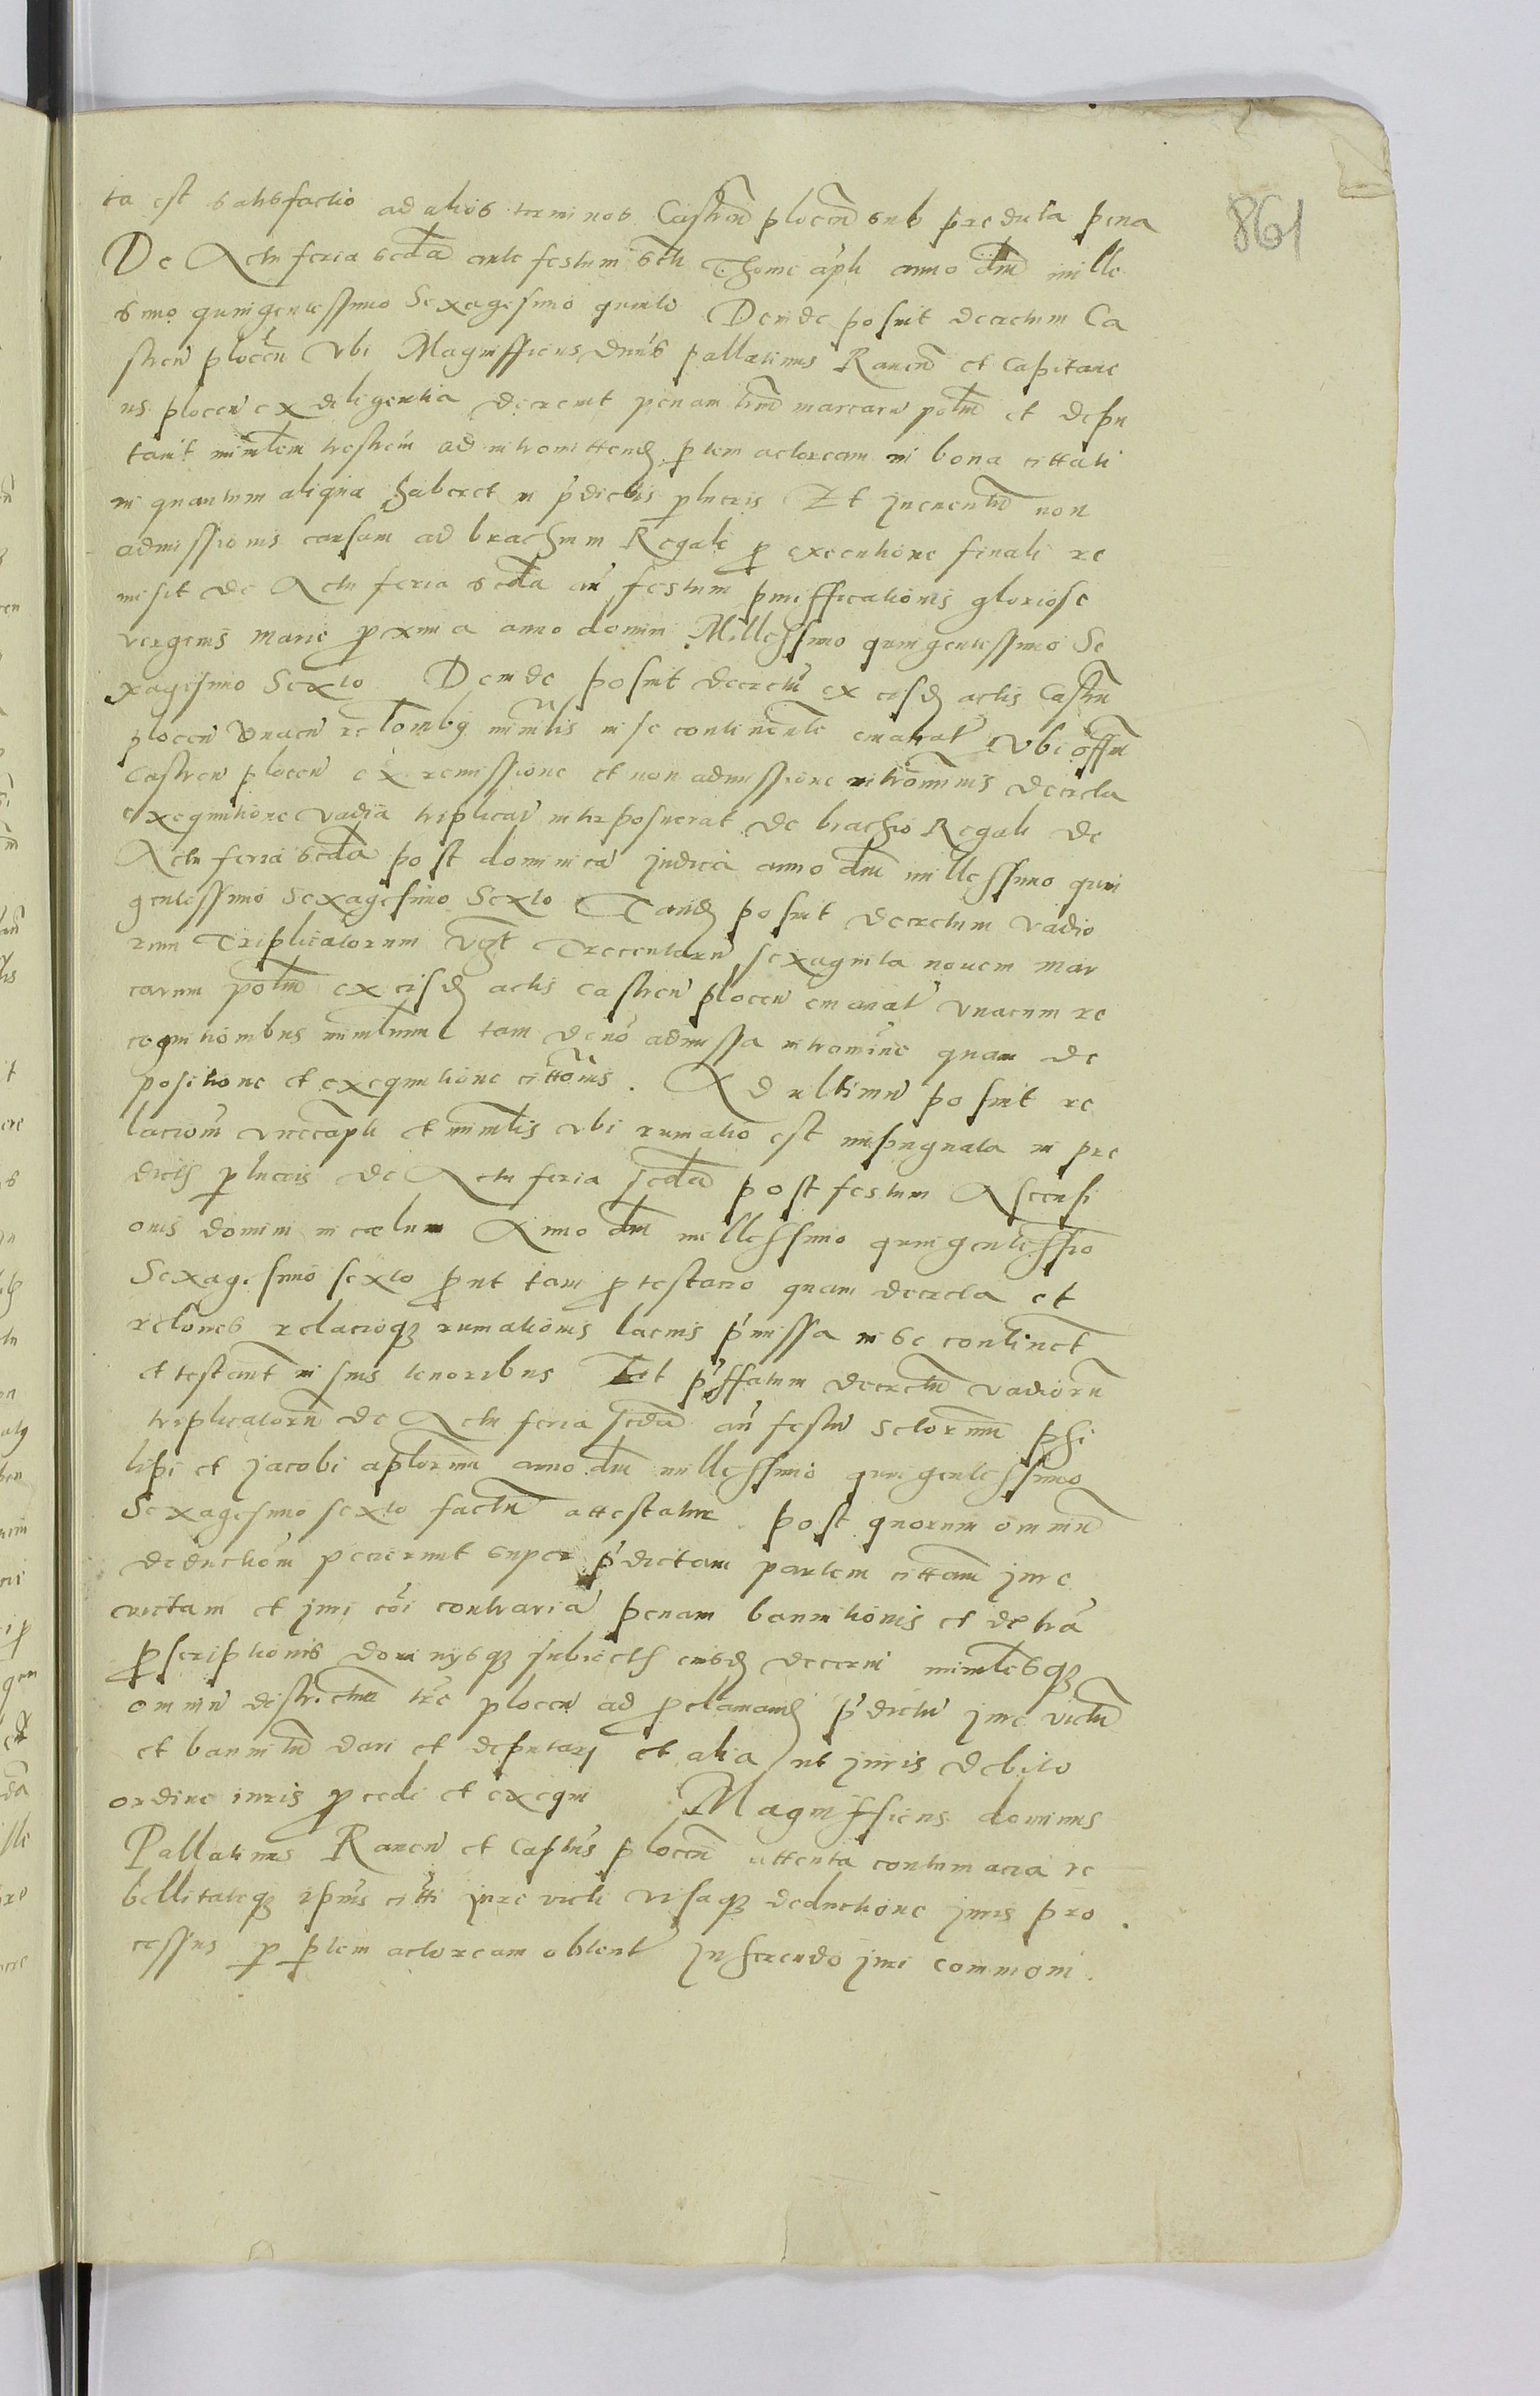 861
ta est satisfactio ad alios terminos Castren̄ plocen̄ sub preducta pena
De Actu feria scda ante festum scti Thome apli anno dni mille
simo quingentessimo Sexagesimo quinto Deinde posuit decretum Ca
stren plocen̄ vbi Magnifficus dnus pallatinus Raven̄ et Capitane
us plocen ex diligentia decrevit penam trium marcarū pol̄m et depu
tavit mīnlem terrestrem ad intromittend ptem actoream in bona cittati
in quantum aliqua haberet in p̄dictis plucris Et Ineventū non
admissionis causam ad brachium Regale p executione finali re
misit de Actu feria scda an̄ festum puriffications gloriose
vergenis marie pxima anno domini Millessimo quingentessimo Se
xagesimo Sexto Deinde posuit decretū ex eisd actis Castrn̄
plocen̄ vnacū recl̄ombus mīnlis in se continente emanat̄ vbi off̄m
Castren̄ plocen ex remissione et non admissione introm̄mis decreta
exequutione vadia triplicat̄ interposuerat de brachio Regali de
Actu feria scda post dominicā Iudica anno dni millessimo quin
gentessimo Sexagesimo Sexto Tand posuit decretum vadio
rum Triplicatorum vz̄ Trecentarū sexaginta novem mar
carum pol̄m ex eisd actis castren̄ plocen emanat̄ vnacum re
cognitionibus mīnlium tam de nō admissa intromine quam de
positione et exequutione cittōnis. Ad ultimū posuit re
lacionē vicecapli et mīnlis vbi rumatio est inpugnata in pre
dicts plucris de Actu feria scda post festum Ascensi
onis domini in cœlum Anno dni millessimo quingentessio
Sexagesimo sexto put tam ptestacio quam decreta et
relōnes relacioqz rumationis lacius p̄missa in se continet
et testant̄ in suis tenoribus Et p̄ffatum decretū vadiorū
triplicatorū de Actu feria scda an̄ festū sctorum phi
lipi et Jacobi aplorum anno dni millessimo quingentessimo
Sexagesimo sexto factū attestatur post quorum omniū
deductionē pecierunt super p̄dictam partem cittam jure
victam et juri cōi contraria penam bannitionis et de trā
pscriptionis dominysqz subiects eiusd decerni mīnlesqz
omniū districtuū trē plocen ad pclamand p̄dictū jure victū
et bannitū dari et deputari et alia ut juris debito
ordine iuris pcedi et exequi Magnifficus dominus
Pallatinus Raven̄ et Captūs plocen̄ attenta contumacia re
bellitateqz ipius citti jure victi visaqz deductione juris pro
cessus p ptem actoream obtent̄ Inherendo juri communi